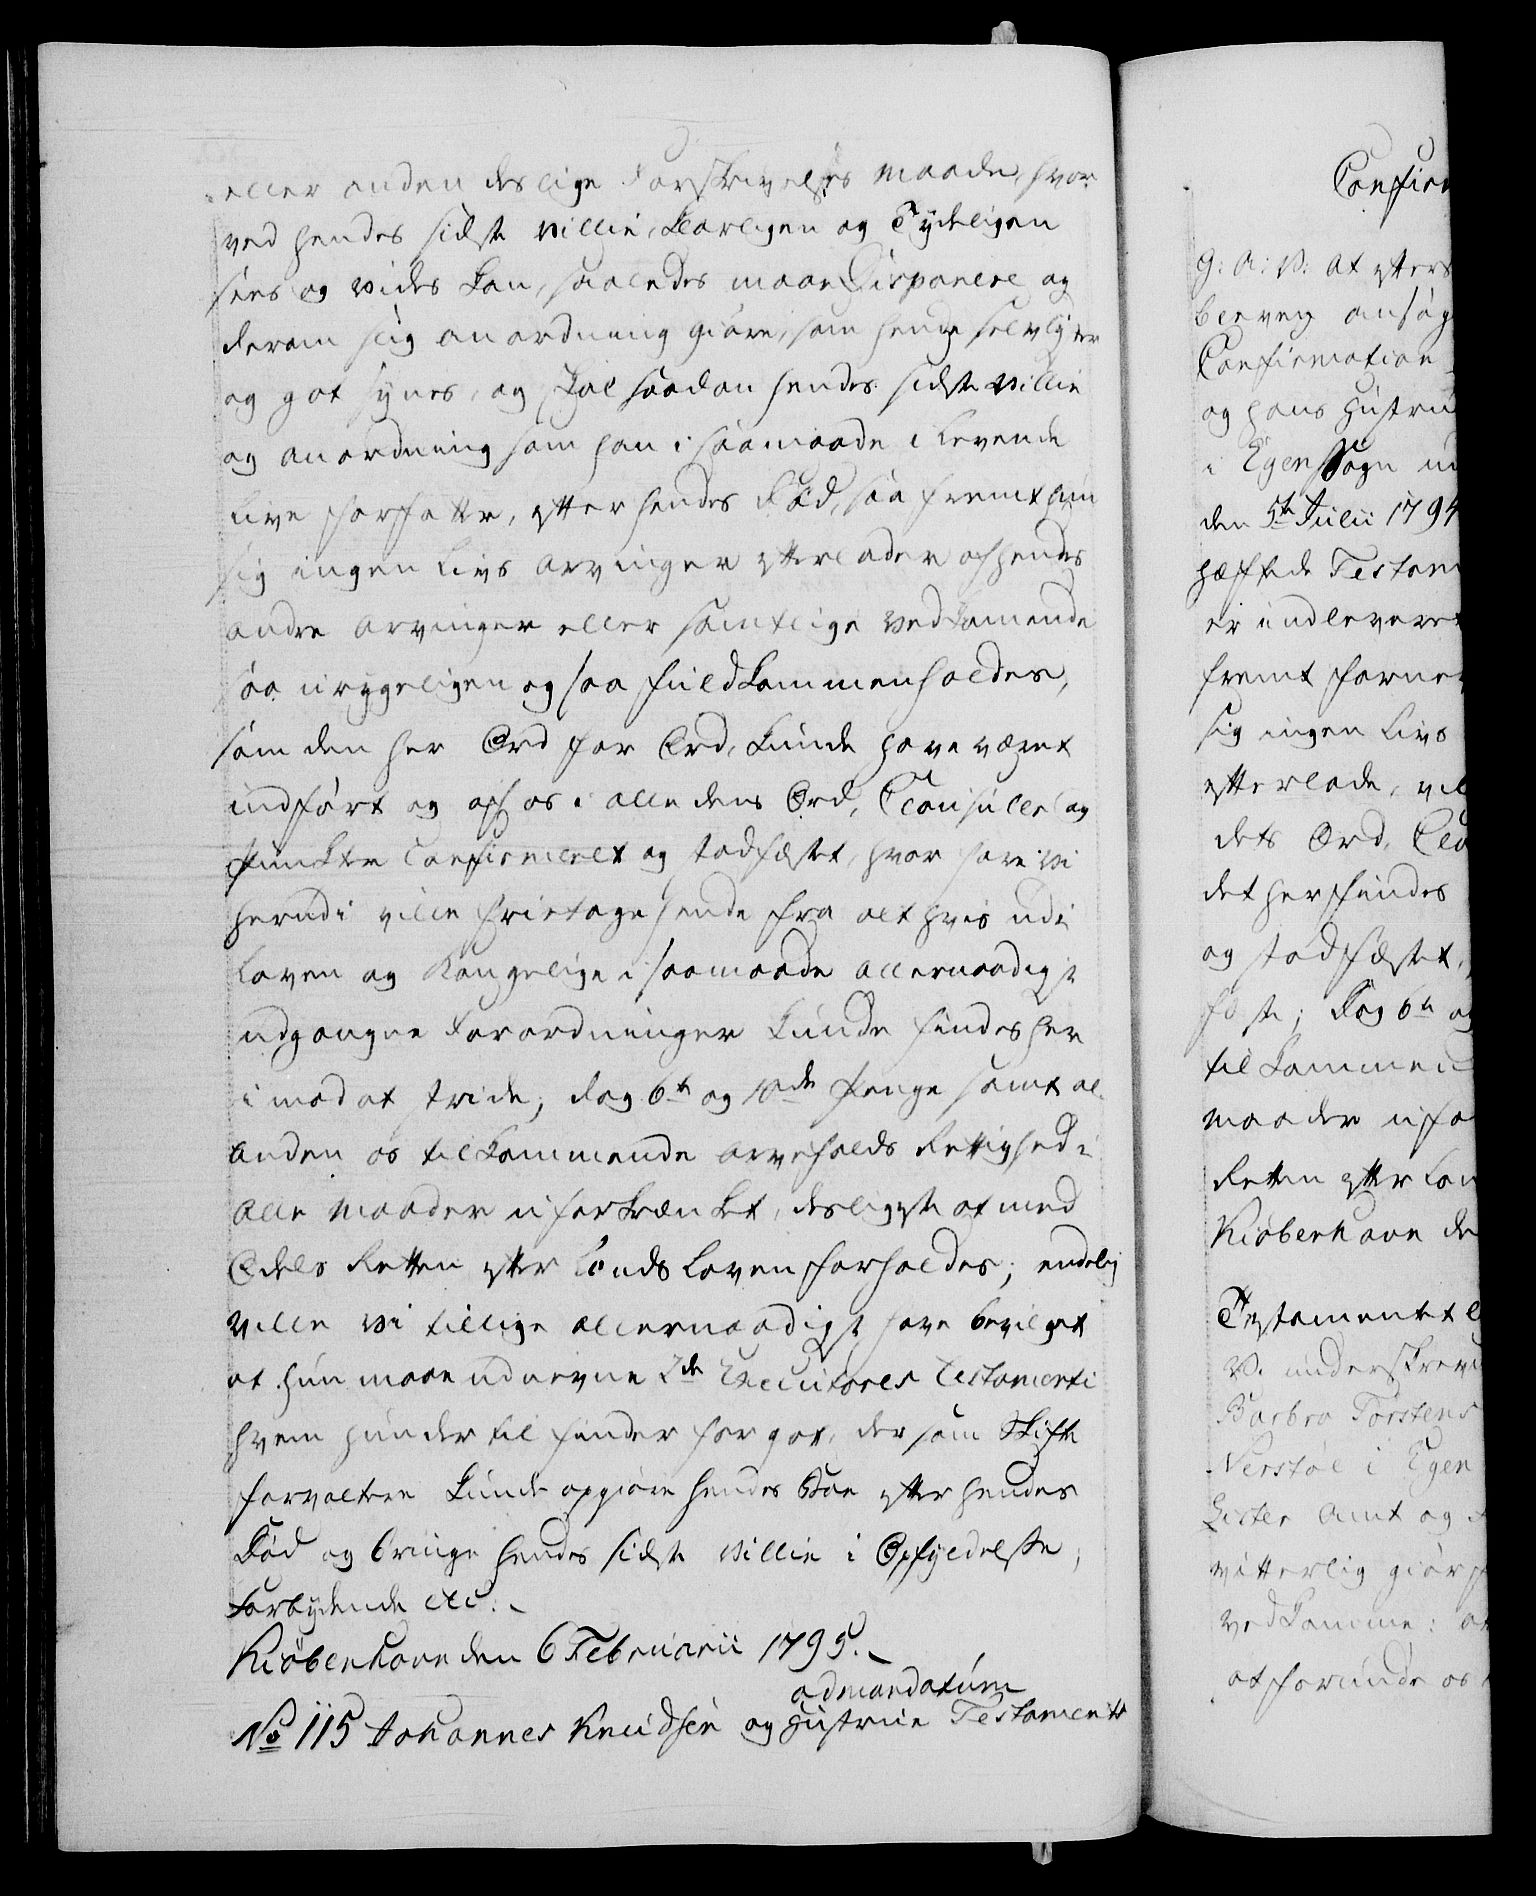 eller anden deslige Forskrivelses maade, hvor
ved hendes sidste villie, klarligen og Tydeligen
sees og vides kan, saaledes maae Disponere og
derom slig anordning giøre, som hende selv lyster
og got synes, og skal saadan hendes sidste villie
og anordning som hun i saamaade i levende
Live forfatter, efter hendes Død, saa fremt hun
sig ingen Livs arvinger efterlader af hendes
andre arvinger eller samtlige vedkommende
saa uryggeligen og saa fuldkommen holdes,
som den her Ord for Ord, kunde have været
indført og af os i alle dens Ord, Clausuller og
puncter Confirmeret og stadfæstet, hvor fore vi
herudi ville frietage hende fra alt hvis udi
Loven og Kongelige i saamaade allernaadigst
udgangne Forordninger kunde findes her
imod at stride; dog 6te og 10de penge samt al
anden os tilkommende arvefalds Rettighed i
alle maader uforkrænket, desligeste at med
Odels Retten efter Lands Loven forholdes; endelig
ville vi tillige allernaadigst have bevilget
at hun maae udnevne 2de Executores Testamenti
hvem hun der til finder for got, der som Skifte
forvaltere kunde opgiøre hendes Boe efter hendes
Død og bringe hendes sidste villie i Opfyldelse;
Forbydende etc.
Kiøbenhavn den 6 Februarii 1795.
ad mandatum
No 115 Johannes Knudsen og Hustrues Testamente
Confirm
G: A: V: At efters
beven ansøg
Confirmation
og hans Hustru
i Egen Sogn ud
den 5te Julii 1794
hæftede Testam
er indleveret
fremt forne
sig ingen Livs
efterlade, vil
dets Ord, Cla
det her findes
og stadfæstet,
dog 6te og
tilkommen
maader ufo
Retten efter Lan
Kiøbenhavn de
Testamentet
V. underskrevn
Barbra Torstens
Nerstøl i Egen
Lister Amt og
vitterlig giør
vedkomme: at
at forunde os